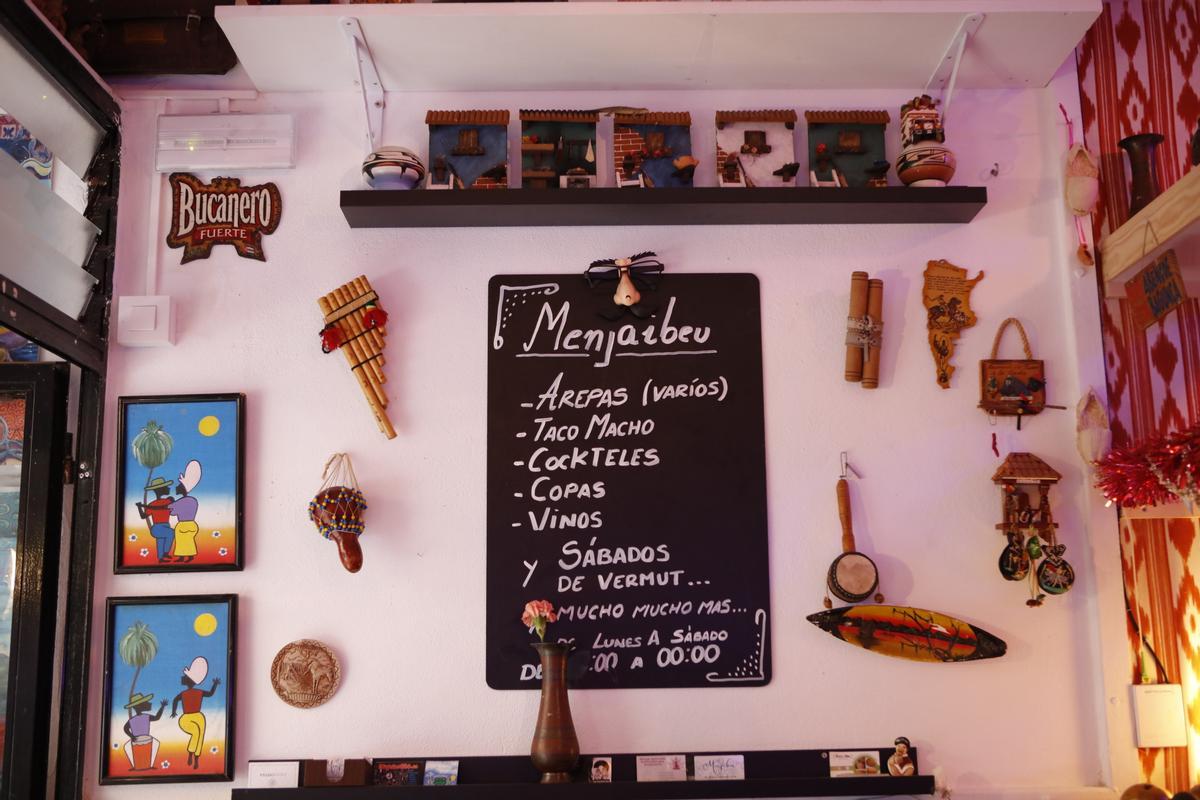 Bucanero
FUERTE
Menjaibeu
- AREPAS (VARÍOS)
- TACO MACHO
- COCKTELES
- COPAS
- VINOS
y SÁBADOS
DE VERMUT...
MUCHO MUCHO MAS...
LUNES A SÁBADO
DE :00 A 00:00